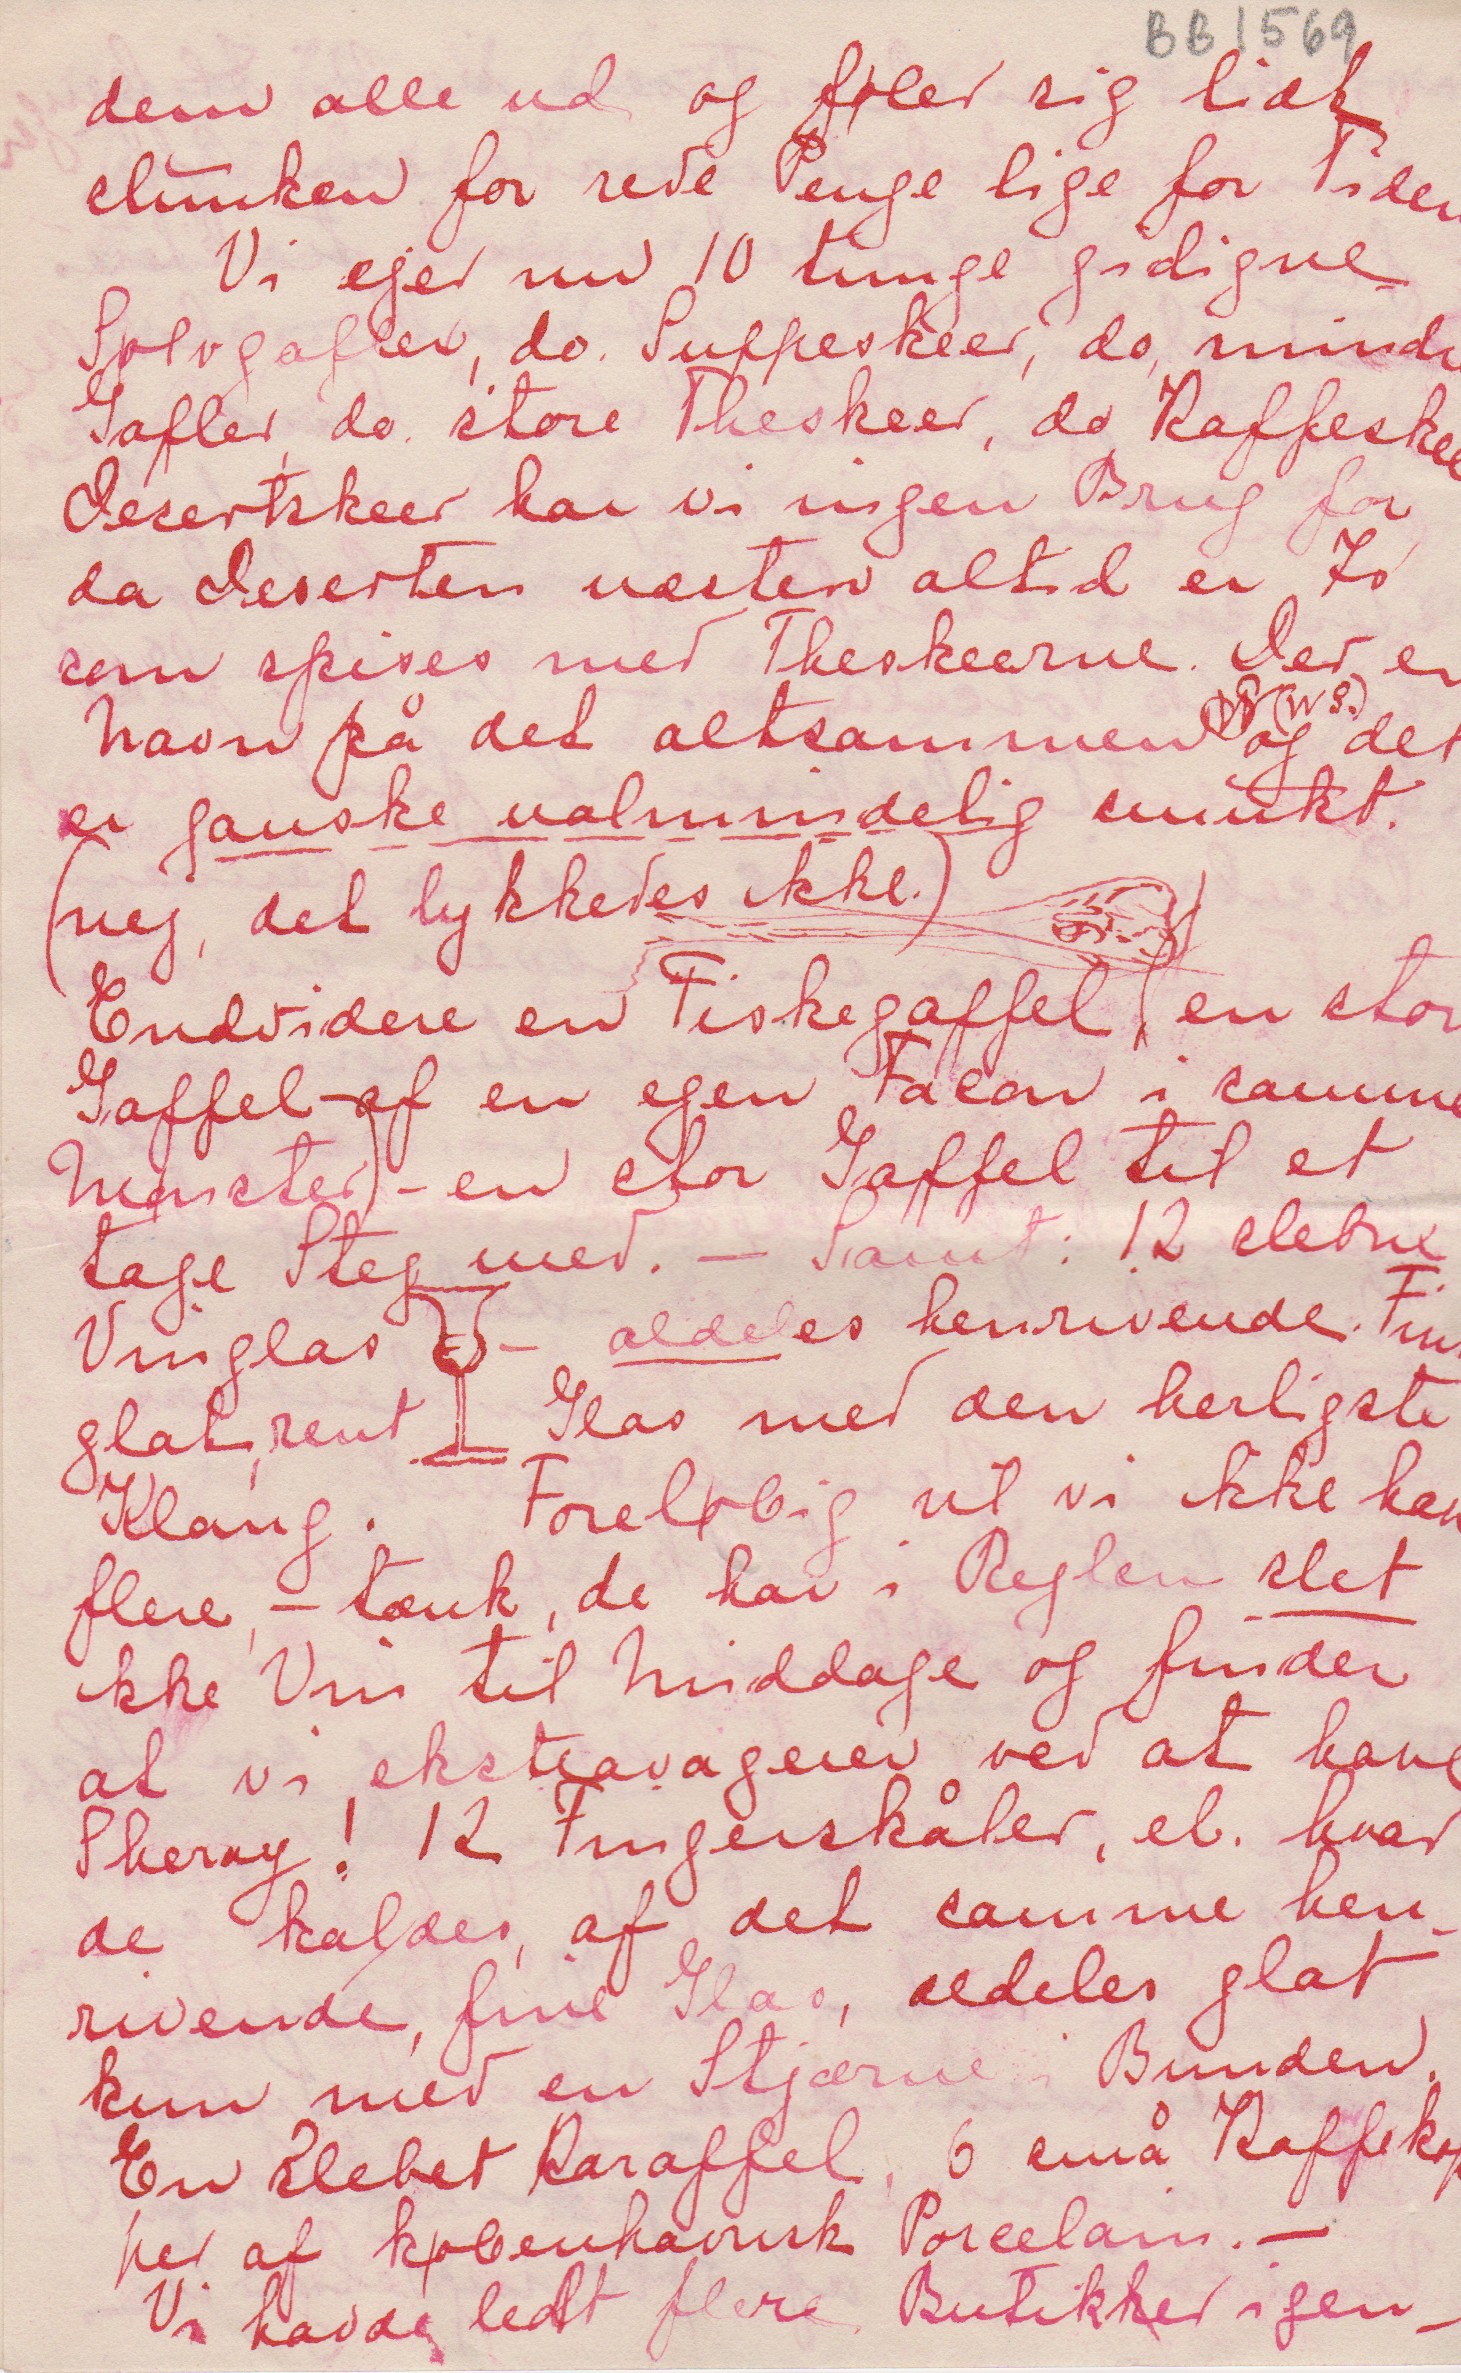 BB1569
dem alle ud og føler sig lidt
slunken for rede Penge lige for Tiden
Vi ejer nu 10 tunge gedigne
Sølvgafler, do. Suppeskeer, do, mindre
Gafler, do. store Theskeer, do Kaffeskeer
Desertskeer har vi ingen Brug for
da Deserten næsten altid er Is
som spises med Theskeerne. Der er
Navn på det altsammen (W S.) og det
er ganske ualmindelig smukt.
(nej, det lykkedes ikke.)
Endvidere en Fiskegaffel (en stor
Gaffel af en egen Facon i samme
Mønster) - en stor Gaffel til et
tage Steg med. — Samt: 12 slebne
Vinglas - aldeles henrivende. Fint
glat, rent Glas med den herligste
Klang. Foreløbig vil vi ikke have
flere, - tænk, de har i Reglen slet
ikke Vin til Middage og finder
at vi ekstravagerer ved at have
Sherry! 12 Fingerskåler, el. hvad
de kaldes, af det samme hen-
rivende, fine Glas, aldeles glat
kun med en Stjærne i Bunden.
En slebet Karaffel, 6 små Kaffekop
per af københavnsk Porcelain. —
Vi havde ledt flere Butikker igen-